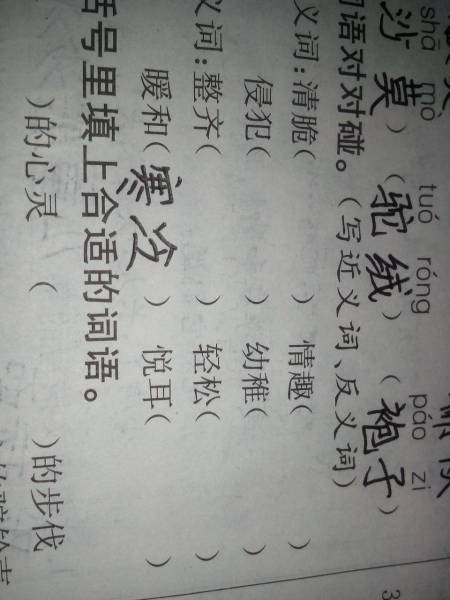 shā mò tuó róng páo zi
沙莫) (驼绒) (袍子)
词语对对碰。(写近义词、反义词)
义词:清脆( ) 情趣( )
侵犯( ) 幼稚( )
义词:整齐( ) 轻松( )
暖和(寒冷) 悦耳( )
括号里填上合适的词语。
)的心灵 ( )的步伐
3